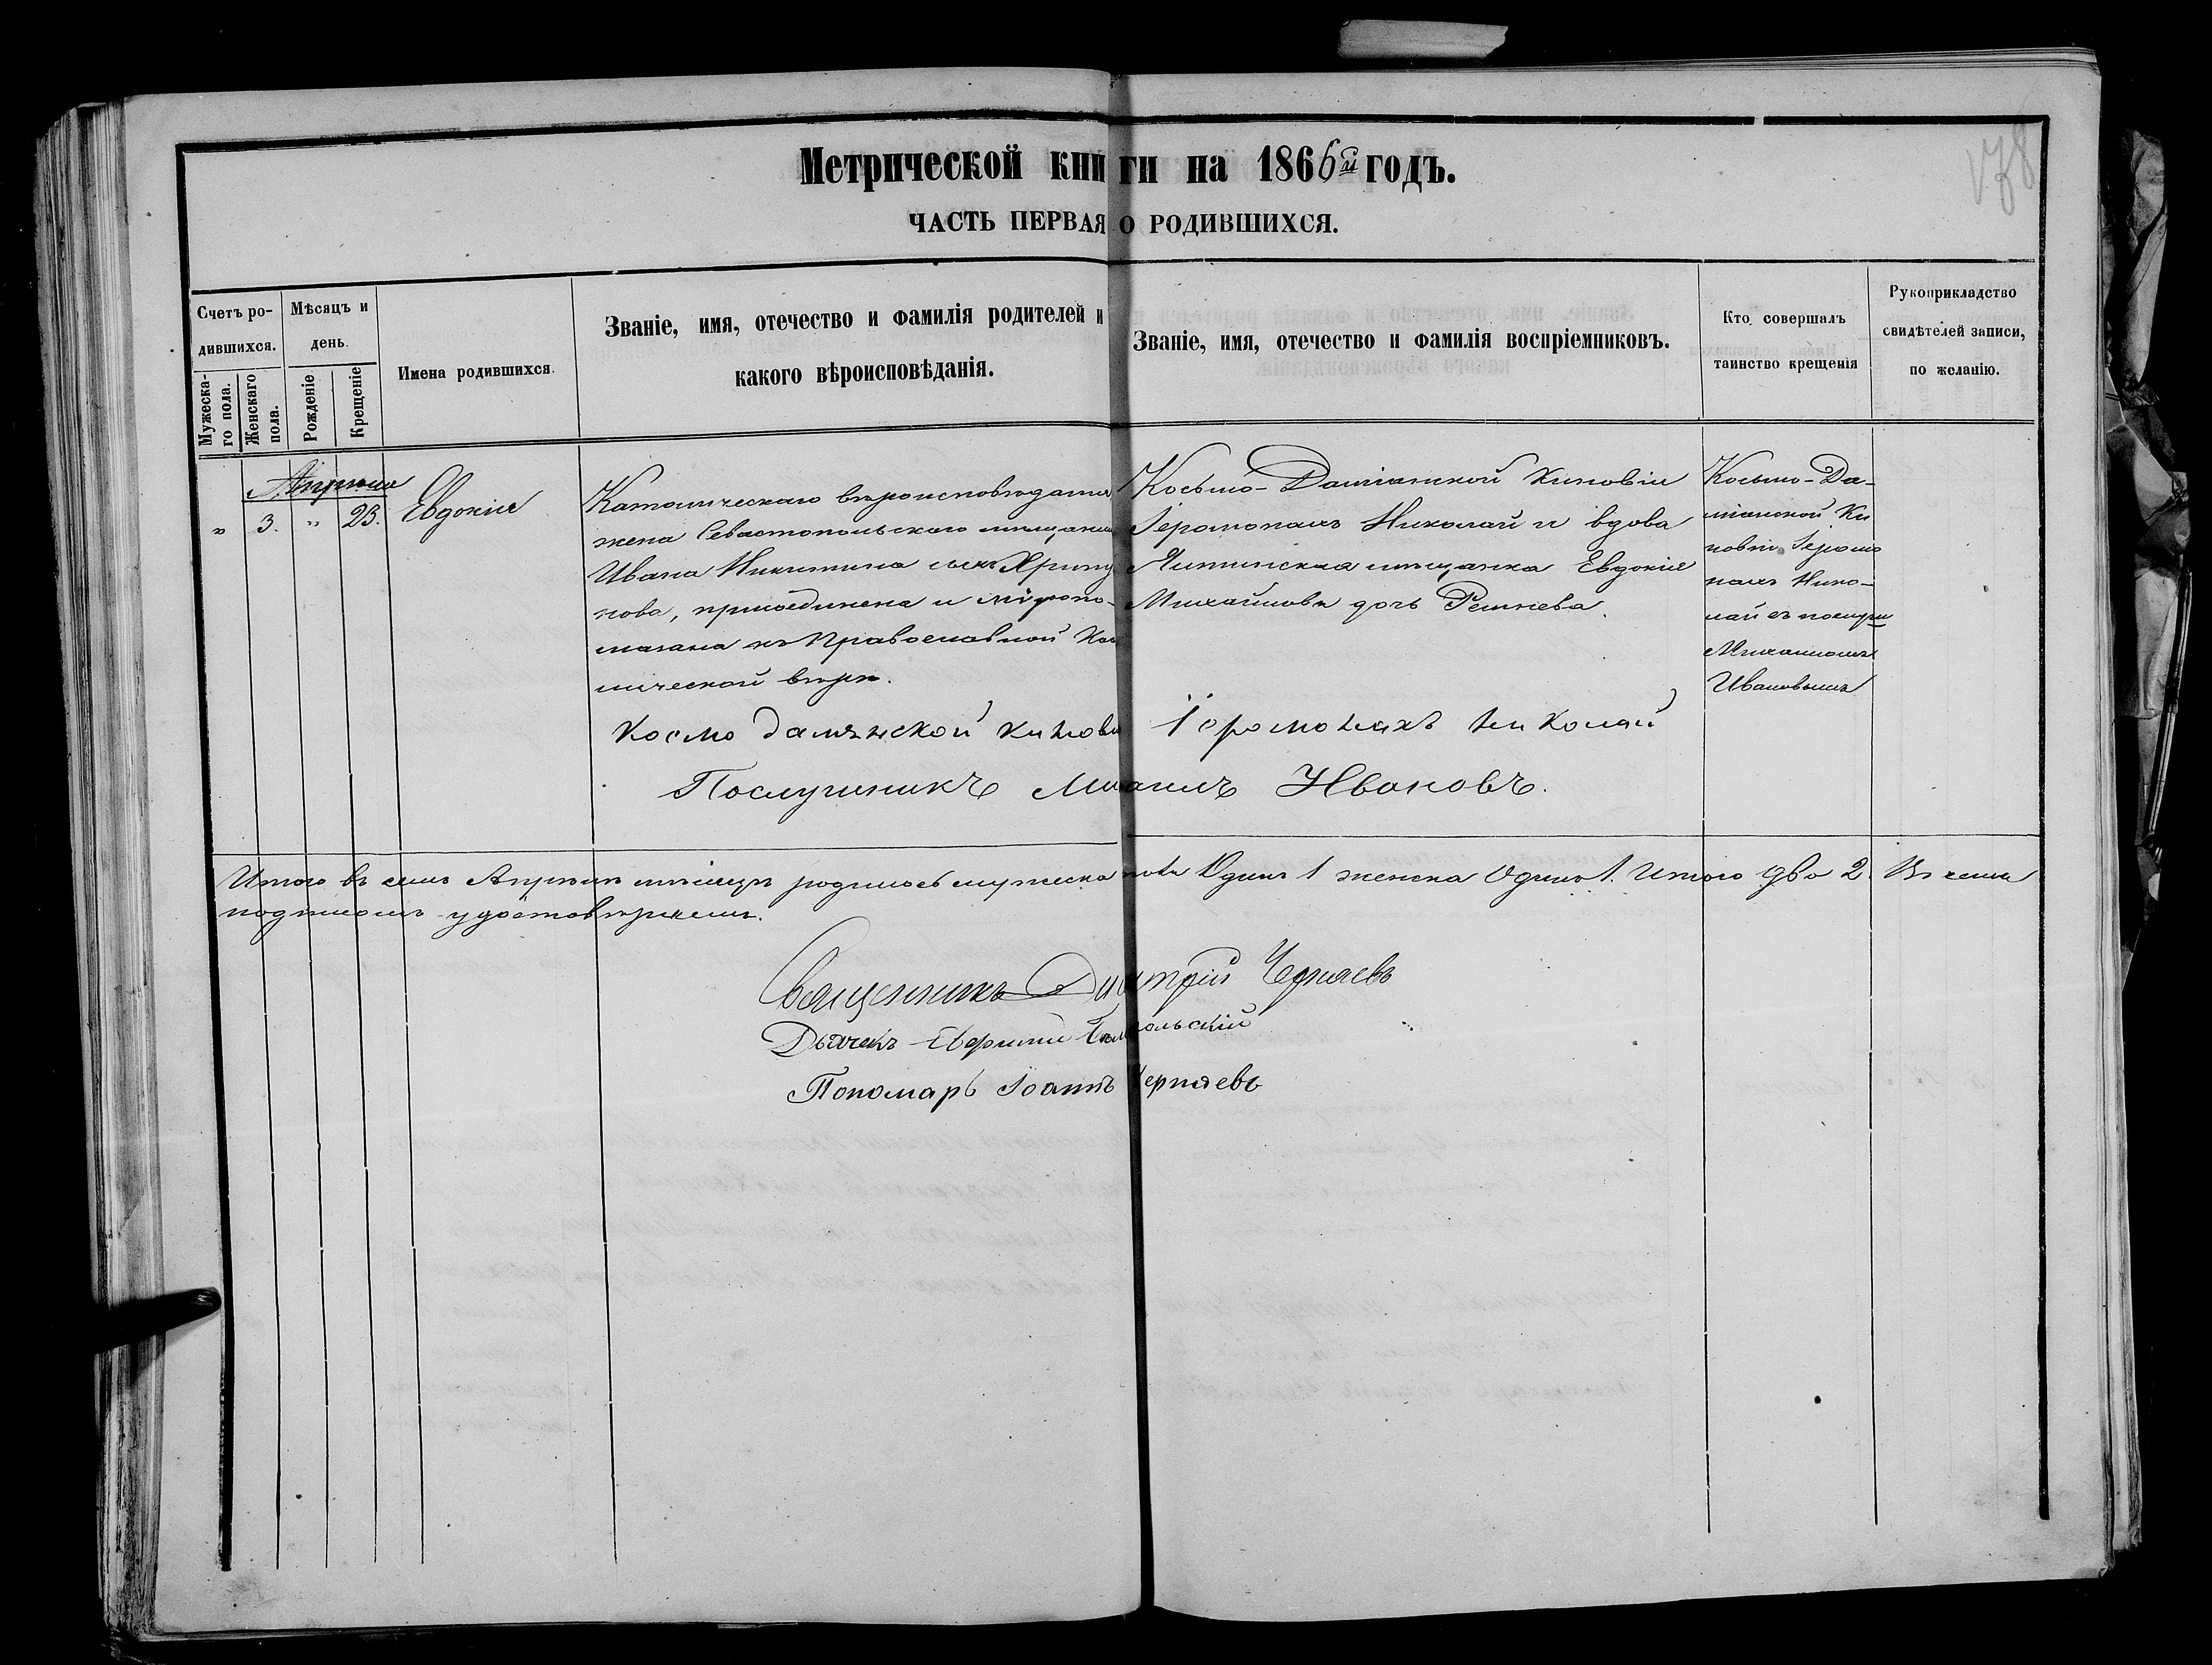 178
Метрической книги на 1866й годъ.
ЧАСТЬ ПЕРВАЯ О РОДИВШИХСЯ.
Счетъ ро-
дившихся.
Мужеска-
го пола.
Женскаго
пола.
Мѣсяцъ и
день.
Рожденіе
Крещеніе
Имена родившихся.
Званіе, имя, отечество и фамилія родителей и
какого вѣроисповѣданія.
Званіе, имя, отечество и фамилія воспріемниковъ.
Кто совершалъ
таинство крещенія
Рукоприкладство
свидѣтелей записи,
по желанію.
Апрѣля
" 3. " 23. Евдокія
Католическаго вѣроисповѣданія
жена Севастопольскаго мѣщанина
Ивана Никитина сына
нова, присоединена и мѵропо-
мазана къ Православной Каѳо
лической вѣрѣ.
Косьмо-Даміанской Киновіи
Іеромонахъ Николай и вдова
Ялтинская мѣщанка Евдокія
Михайлова дочь
Косьмо-Да-
міанской Ки
новіи Іеромо
нахъ Нико-
лай съ послуш
Михаиломъ
Ивановымъ
Космо дамянской кинови Іеромонахъ Николай
Послушникъ Михаилъ Ивановъ.
Итого въ семъ Апрѣлѣ мѣсяцѣ родилось мужеска пола Одинъ 1 женска Одна 1. Итого два 2. Въ чемъ
подписомъ удостовѣряемъ.
Священникъ Димитрій Черняевъ
Дьячекъ
Пономарь Іоаннъ Черняевъ